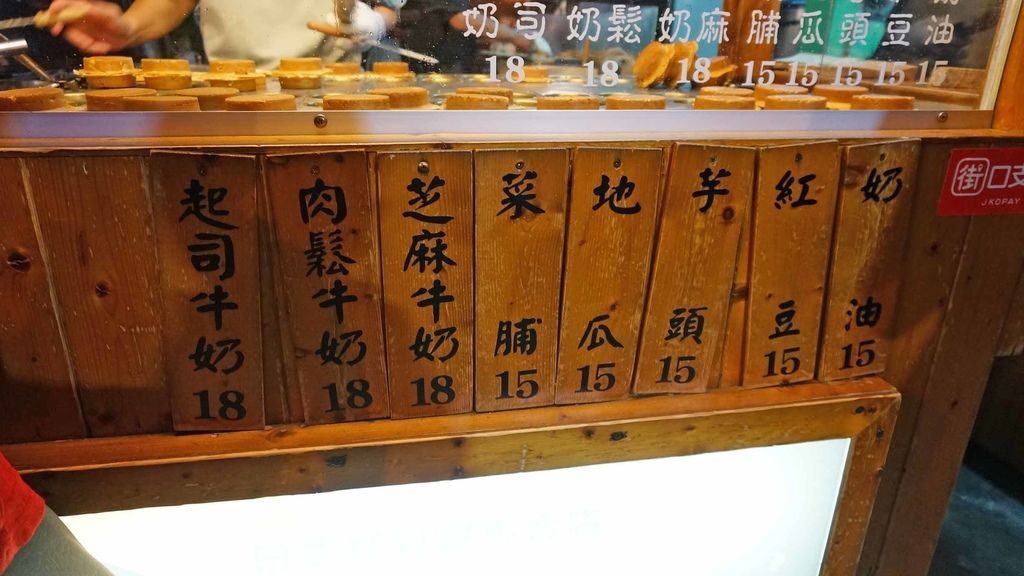 奶司 奶鬆 奶麻 脯 瓜 頭 豆 油
18 18 18 15 15 15 15 15
起司牛奶 18
肉鬆牛奶 18
芝麻牛奶 18
菜脯 15
地瓜 15
芋頭 15
紅豆 15
奶油 15
街口支
JKOPAY